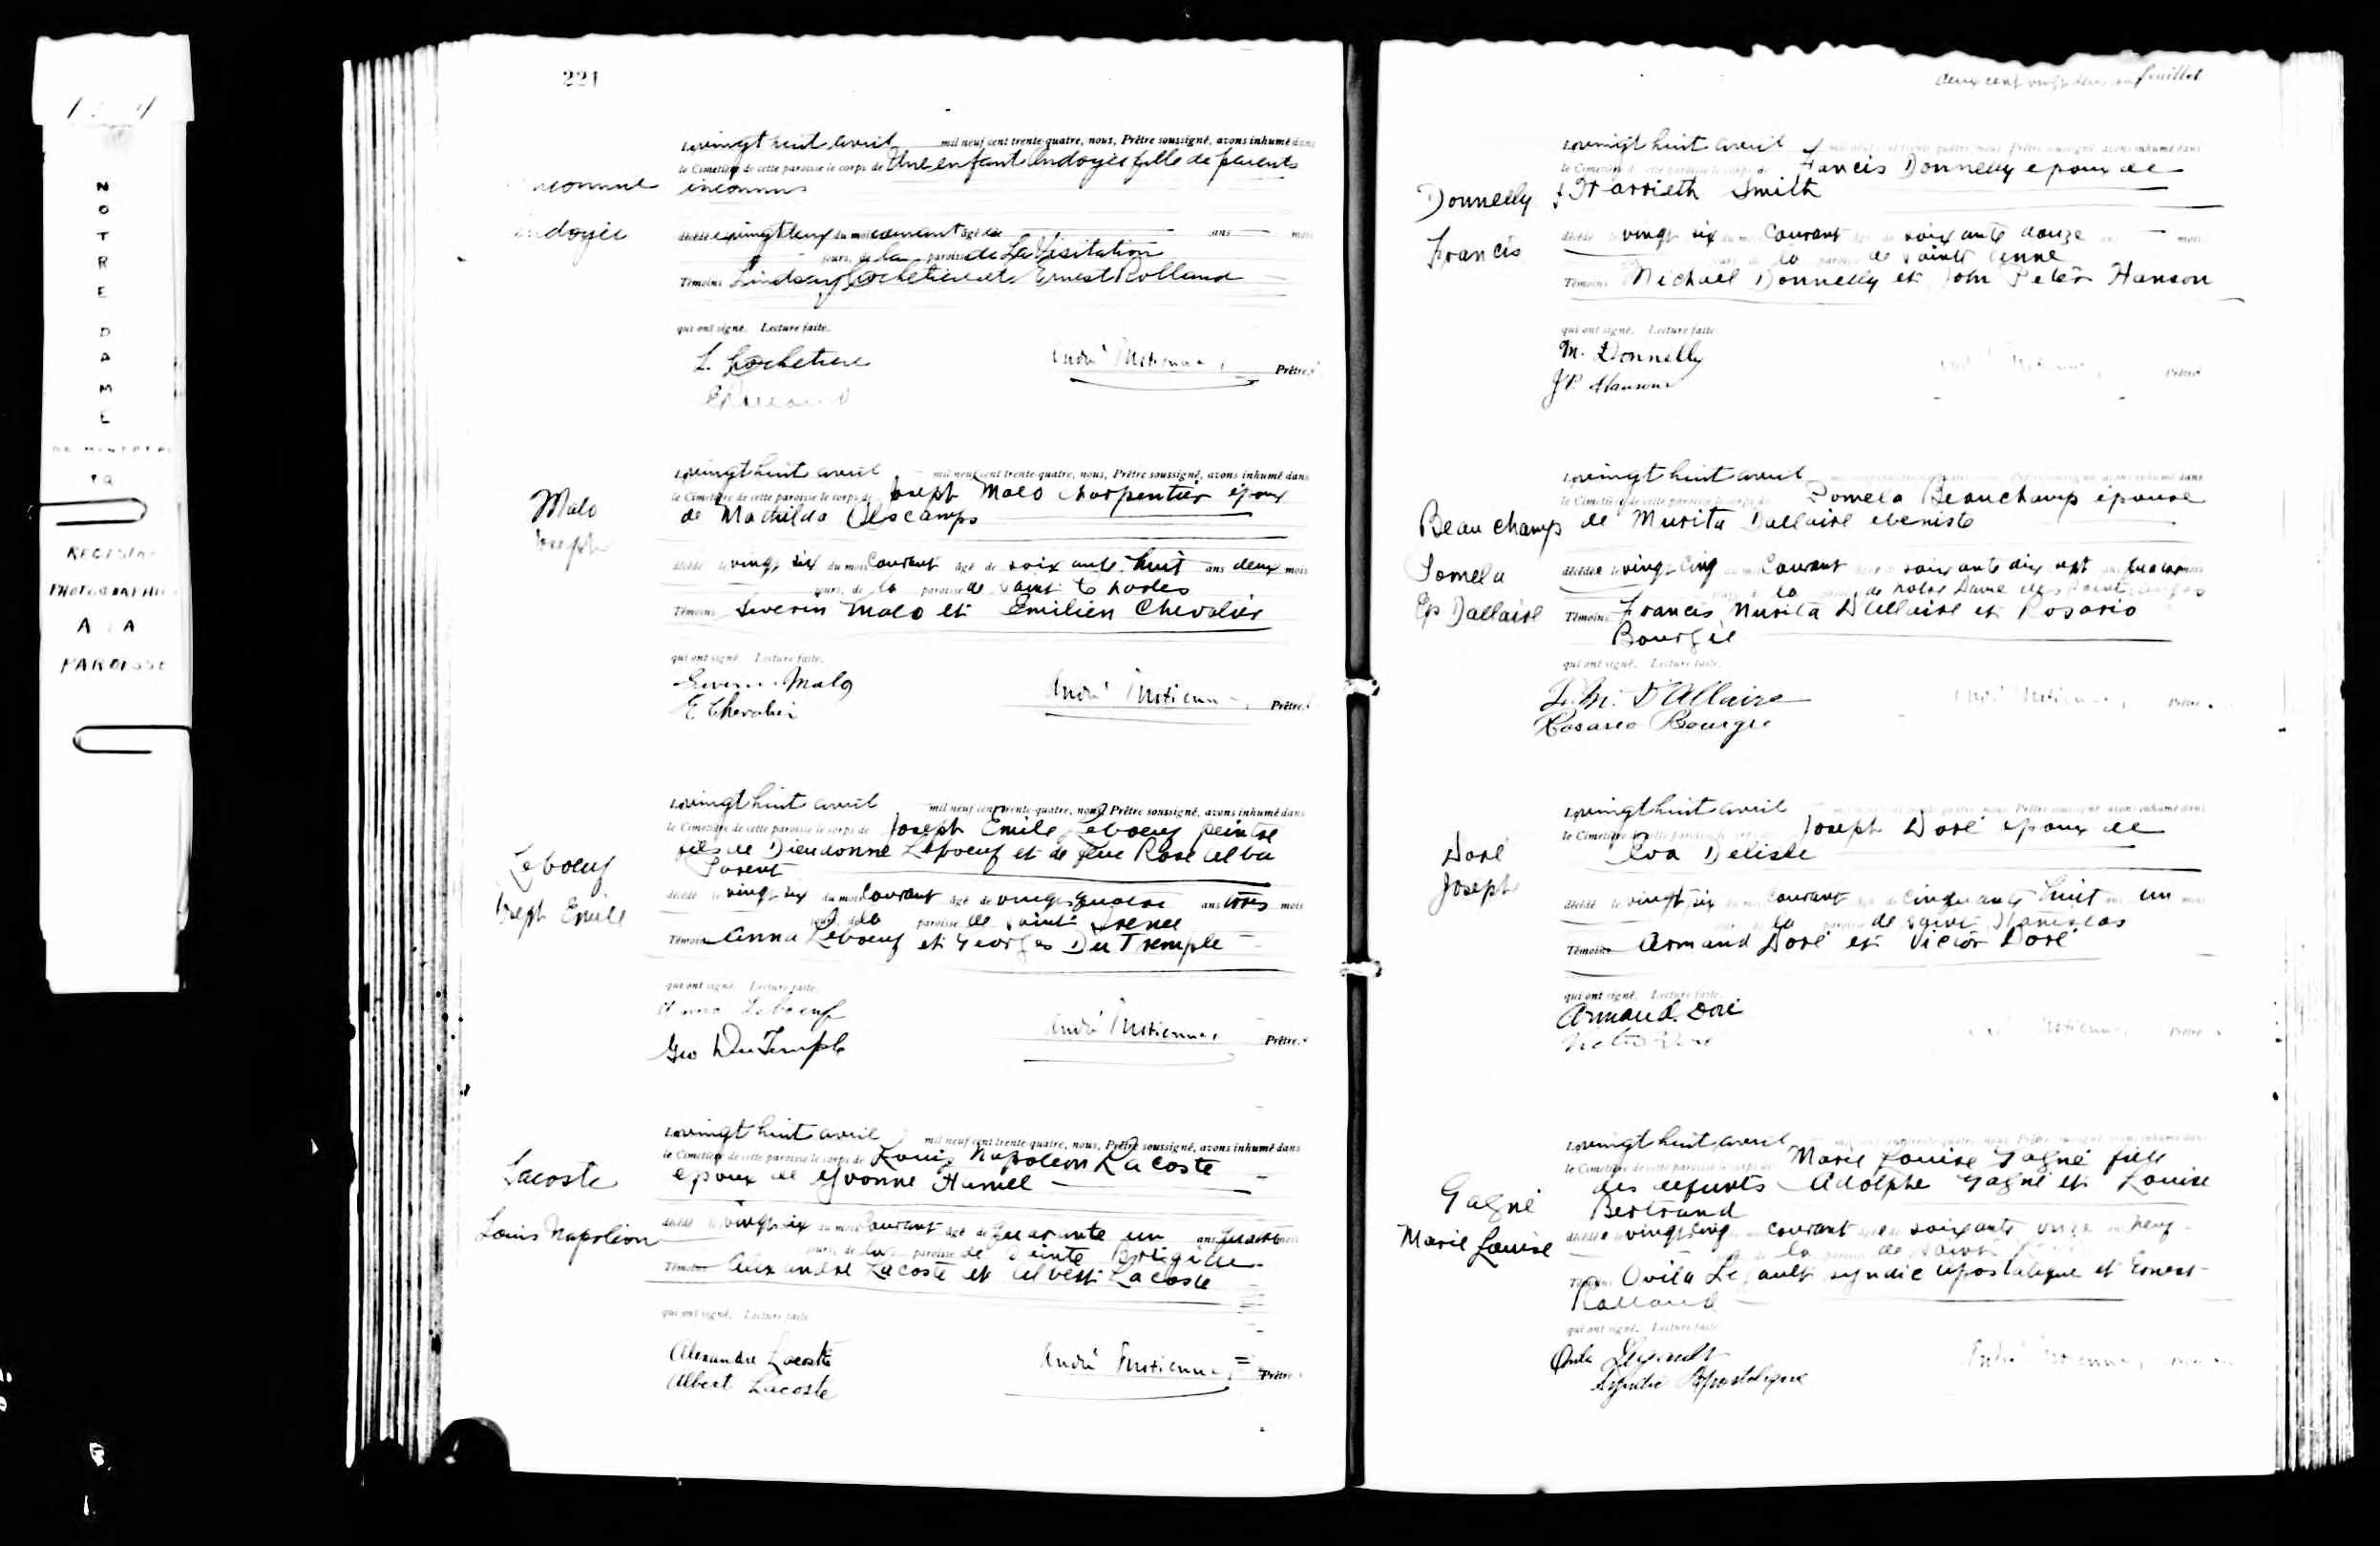 NOTRE DAME
A A
PAROISSE
221
Le vingt huit avril mil neuf cent trente-quatre, nous, Prêtre soussigné, avons inhumé dans
le Cimetière de cette paroisse le corps de Une enfant Ondoyée fille de parents
inconnue inconnus
Ondoyée décédée le vingt deux du mois courant âgé de ans mois
jours, de la paroisse de La Visitation
Témoins Lindsay Lochetiere et Ernest Rolland
qui ont signé. Lecture faite.
L. Lochetiere
Prêtre.
Le vingt huit avril mil neuf cent trente-quatre, nous, Prêtre soussigné, avons inhumé dans
le Cimetière de cette paroisse le corps de Joseph Malo charpentier époux
Malo de Mathilda Descamps
Joseph
décédé le vingt six du mois courant âgé de soixante huit ans deux mois
jours, de la paroisse de Saint Charles
Témoins Severin Malo et Emilien Chevalier
qui ont signé. Lecture faite.
Severin Malo
E Chevalier
Prêtre.
Le vingt huit avril mil neuf cent trente-quatre, nous, Prêtre soussigné, avons inhumé dans
le Cimetière de cette paroisse le corps de Joseph Emile Leboeuf peintre
Leboeuf fils de Dieudonné Leboeuf et de feue Rose Alba
Parent
Joseph Emile décédé le vingt six du mois courant âgé de vingt quatre ans trois mois
jours, de la paroisse de Saint Irenee
Témoins Anna Leboeuf et Georges Du Tremple
qui ont signé. Lecture faite.
Anna Leboeuf
Geo DuTemple
Prêtre.
Le vingt huit avril mil neuf cent trente-quatre, nous, Prêtre soussigné, avons inhumé dans
le Cimetière de cette paroisse le corps de Louis Napoleon Lacoste
Lacoste epoux de Yvonne Hamel
Louis Napoléon décédé le vingt six du mois courant âgé de quarante un ans quatre mois
jours, de la paroisse de Sainte Brigide
Témoins Alexandre Lacoste et Albert Lacoste
qui ont signé. Lecture faite.
Alexandre Lacoste
Albert Lacoste
Prêtre
deux cent vingt deux feuillet
Le vingt huit avril mil neuf cent trente-quatre, nous, Prêtre soussigné, avons inhumé dans
le Cimetière de cette paroisse le corps de Francis Donnelly epoux de
Donnelly Harrieth Smith
Francis décédé le vingt six du mois courant âgé de soixante douze ans mois
jours, de la paroisse de Sainte Anne
Témoins Michael Donnelly et John Peter Hanson
qui ont signé. Lecture faite.
M. Donnelly
J.P. Hanson
Prêtre
Le vingt huit avril
le Cimetière de cette paroisse le corps de Pomela Beauchamp épouse
Beauchamp de Murita Dallaire ebeniste
Pomela décédée le vingt cinq du mois courant âgé de soixante dix sept ans
la paroisse de Notre Dame des
Ep Dallaire Témoins Francis Murita Dallaire et Rosario
Bourgie
qui ont signé. Lecture faite.
F. M. D'Allaire
Rosario Bourgie
Prêtre
Le vingt huit avril
le Cimetière de cette paroisse le corps de Joseph Doré epoux de
Doré Eva Delisle
Joseph
décédé le vingt six du mois courant âgé de cinquante huit ans un mois
la paroisse de Saint Stanislas
Témoins Armand Doré et Victor Doré
qui ont signé. Lecture faite.
Armand Doré
Victor Doré
Prêtre
Le vingt huit avril
le Cimetière de cette paroisse le corps de Marie Louise Gagné fille
Gagné des defunts Adolphe Gagné et Louise
Bertrand
Marie Louise décédée le vingt cinq courant âgé de soixante onze ans neuf
la paroisse de Saint
Témoins Ovila Legault syndic apostolique et Ernest
Rolland
qui ont signé. Lecture faite.
Ovila Legault
Syndic Apostolique